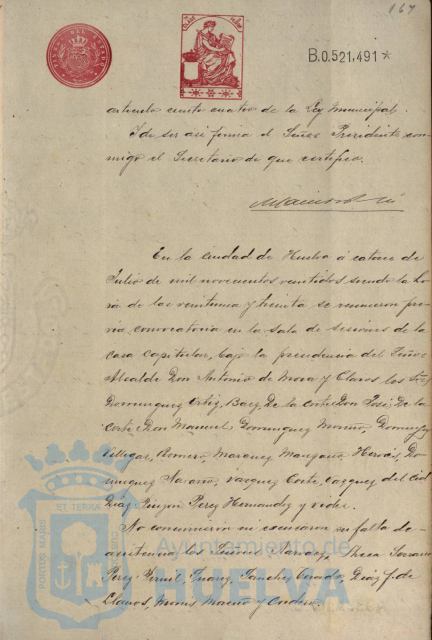 167
B.0.521,491*
articulo ciento cuatro de la Ley Municipal.
Y de ser asi firma el Señor Presidente con-
migo el Secretario de que certifico.
En la Ciudad de Huelva á catorce de
Julio de mil novecientos veintidos siendo la ho-
ra de las veintiuna y treinta se reunieron pre-
via convocatoria en la sala de sesiones de la
casa capitular, bajo la presidencia del Señor
Alcalde Don Antonio de Mora y Claros los Sres
Dominguez Ortiz, Baez, De la Corte Don José, De la
Corte Don Manuel, Dominguez
Villegas, Romero, Marquez, Hervás, Do-
minguez Navarro, Vazquez Corte, Vazquez del Cid
Diaz Pinzon Perez Hernandez y
No concurrieron ni excusaron su falta de
asistencia los Señores Soriano
Perez Suarez, Sanchez Diaz F. de
Claros, y Cordero.
PORTUS MARIS ET TERRAE CUSTODIA
Ayuntamiento de
HUELVA